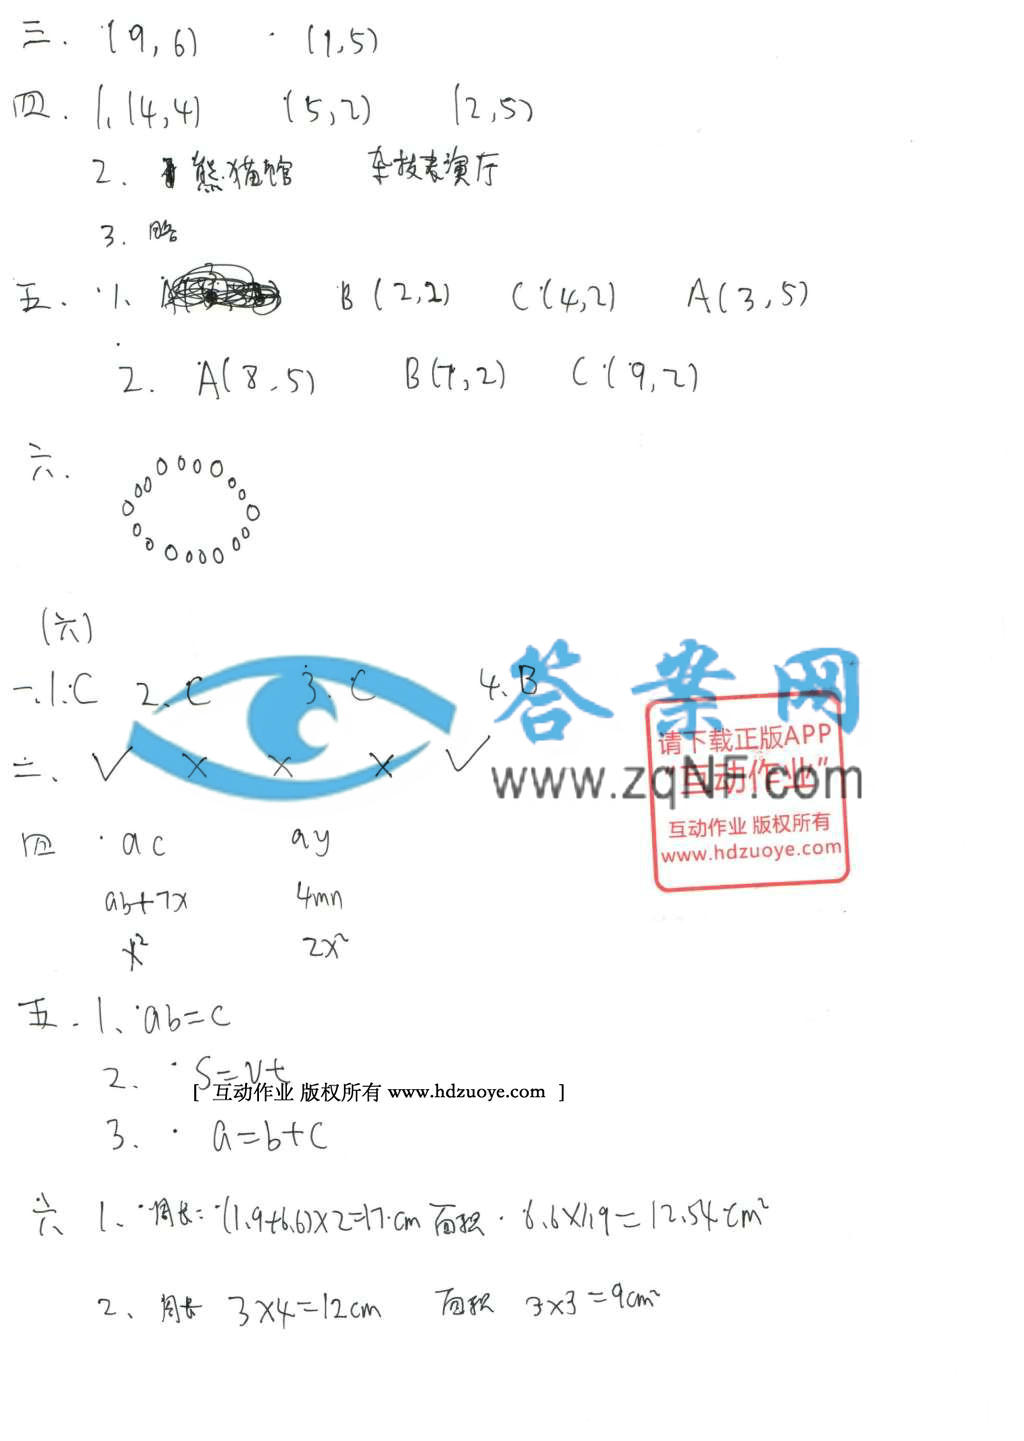 三. (9,6) (1,5)
四. 1. (4,4) (5,2) (2,5)
2. 熊猫馆 杂技表演厅
3. 略
五. 1. B(2,2) C(4,2) A(3,5)
2. A(8.5) B(7,2) C(9,2)
六.
(六)
一.1.C 2.C 3.C 4.B
答案网
二、 ✓ × × × ✓
www.zqNF.com
请下载正版APP
“互动作业”
互动作业 版权所有
www.hdzuoye.com
四 ac ay
ab+7x 4mn
x² 2x²
五. 1、ab=c
2. S=vt
[ 互动作业 版权所有 www.hdzuoye.com ]
3. a=b+c
六、 1、周长:(1.9+6.6)×2=17cm 面积 6.6×1.9=12.54cm²
2、周长 3×4=12cm 面积 3×3=9cm²